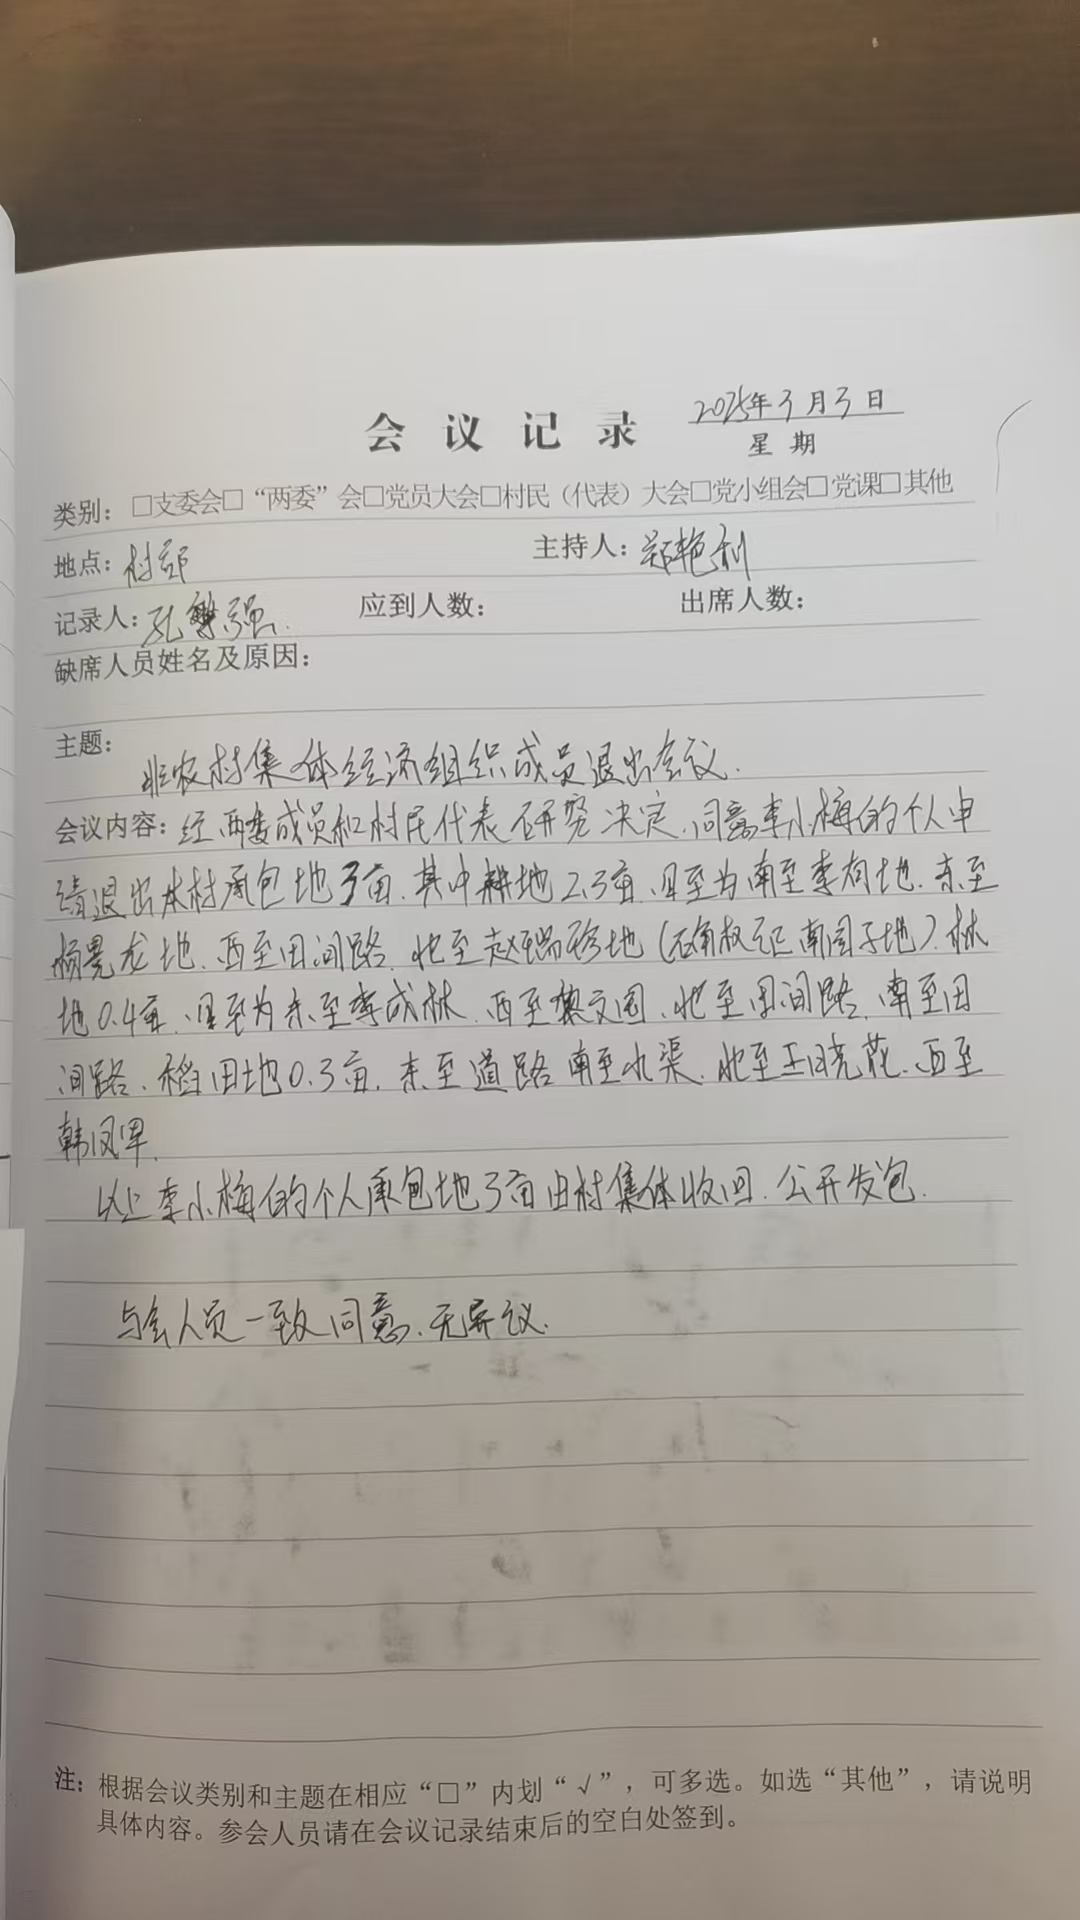 会议记录 2025年3月3日
星期
类别：□支委会□“两委”会□党员大会□村民（代表）大会□党小组会□党课□其他
地点：村部 主持人：郑艳利
记录人：孔繁强 应到人数： 出席人数：
缺席人员姓名及原因：
主题：
非农村集体经济组织成员退出会议.
会议内容：经两委成员和村民代表研究决定.同意李小梅的个人申
请退出本村承包地3亩.其中耕地2.3亩.四至为南至李有地.东至
杨景龙地.西至田间路.北至赵瑞珍地(南园子地).林
地0.4亩.四至为东至李成林.西至樊文国.北至田间路.南至田
间路.稻田地0.3亩.东至道路南至水渠.北至王晓花.西至
韩凤军.
以上李小梅的个人承包地3亩由村集体收回.公开发包.
与会人员一致同意.无异议.
注：根据会议类别和主题在相应“□”内划“√”，可多选。如选“其他”，请说明
具体内容。参会人员请在会议记录结束后的空白处签到。